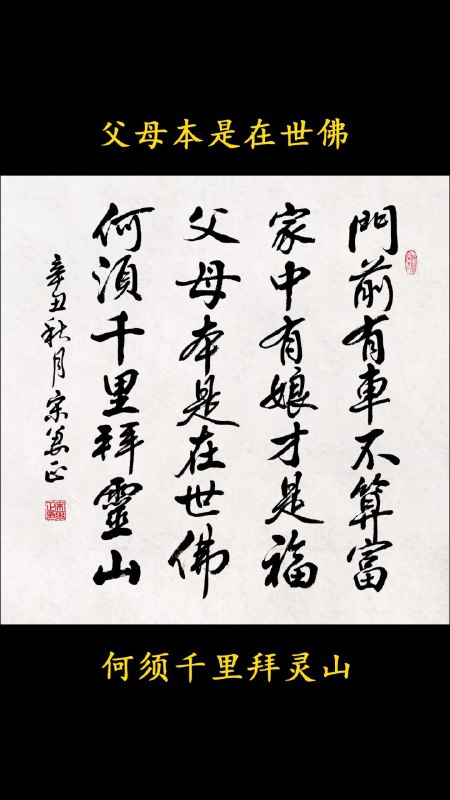 父母本是在世佛
門前有車不算富
家中有娘才是福
父母本是在世佛
何須千里拜靈山
辛丑秋月宗
何须千里拜灵山